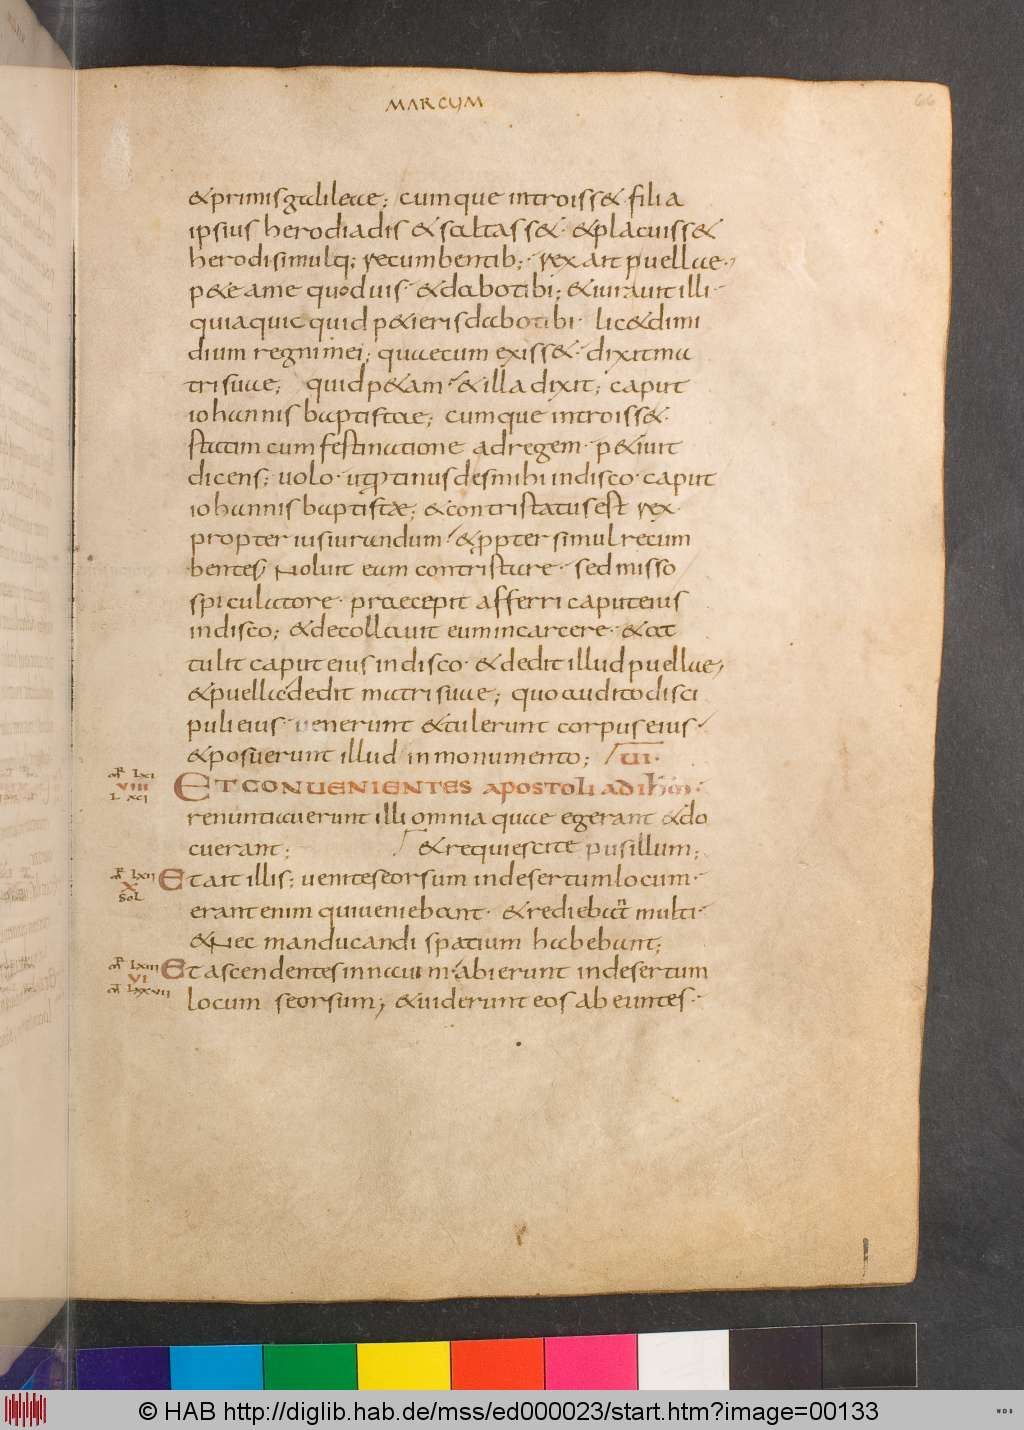 MARCUM
66
&primis galileae; cumque introiss& filia
ipsius herodiadis & saltass&· & placuiss&
herodi simulq; recumbentib;· rex ait puellae·
p&e a me quod vis· & dabo tibi; & iuravit illi·
quia quicquid p&ieris dabo tibi· lic& dimi
dium regni mei; quae cum exiss&· dixit ma
tri suae; quid p&am· & illa dixit; caput
iohannis baptistae; cumque introiss&·
statim cum festinatione ad regem· p&ivit
dicens; uolo· ut ꝓtinus des mihi in disco· caput
iohannis baptistae; & contristatus est rex·
propter iusiurandum· & ꝓpter simul recum
bentes; Noluit eam contristare· sed misso
spiculatore· praecepit afferri caput eius
in disco; & decollavit eum in carcere· & at
tulit caput eius in disco· & dedit illud puellae;
& puella dedit matri suae; quo audito disci
puli eius· venerunt & tulerunt corpus eius·
& posuerunt illud in monumento; UI·
mr̄ lxi
VIII
l xci
ET CONUENIENTES APOSTOLI AD IHM·
renuntiaverunt illi omnia quae egerant & do
cuerant;
& requiescite pusillum;
mr̄ lxii
X
sol
Et ait illis; venite seorsum in desertum locum·
erant enim qui veniebant· & rediebant multi·
& Nec manducandi spatium habebant;
mr̄ lxiii
VI
mt̄ lxxvii
Et ascendentes in navim· abierunt in desertum
locum seorsum; & viderunt eos abeuntes·
© HAB http://diglib.hab.de/mss/ed000023/start.htm?image=00133